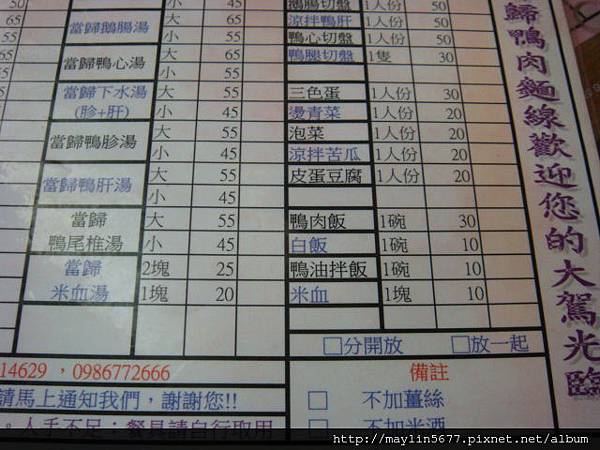 65 小 鵝腸切盤 1人份 50
當歸鵝腸湯 大 65 涼拌鴨肝 1人份 50
小 45 鴨心切盤 1人份 50
當歸鴨心湯 大 65 鴨腿切盤 1隻 30
小 55
當歸下水湯 大 55 三色蛋 1人份 30
(胗+肝) 小 45 燙青菜 1人份 20
當歸鴨胗湯 大 55 泡菜 1人份 20
小 45 涼拌苦瓜 1人份 20
當歸鴨肝湯 大 55 皮蛋豆腐 1人份 20
小 45
當歸 大 55 鴨肉飯 1碗 30
鴨尾椎湯 小 45 白飯 1碗 10
當歸 2塊 25 鴨油拌飯 1碗 10
米血湯 1塊 20 米血 1塊 10
□分開放 □放一起
14629 ,0986772666
請馬上通知我們,謝謝您!!
。人手不足;餐具請自行取用
備註
□ 不加薑絲
□ 不加米酒
歸鴨肉麵線歡迎您的大駕光臨
http://maylin5677.pixnet.net/album